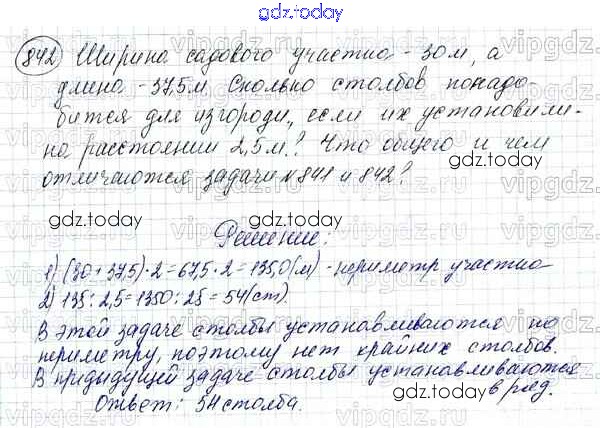 gdz.today
842 Ширина садового участка - 30 м, а
длина - 37,5 м. Сколько столбов понадо-
бится для изгороди, если их установили
на расстоянии 2,5 м? Что общего и чем
отличаются задачи №841 и 842?
gdz.today gdz.today
Решение:
1) (30+37,5)·2=67,5·2=135,0(м) - периметр участка
2) 135:2,5=1350:25=54(ст).
В этой задаче столбы устанавливаются по
периметру, поэтому нет крайних столбов.
В предыдущей задаче столбы устанавливаются
в ряд.
Ответ: 54 столба.
gdz.today gdz.today